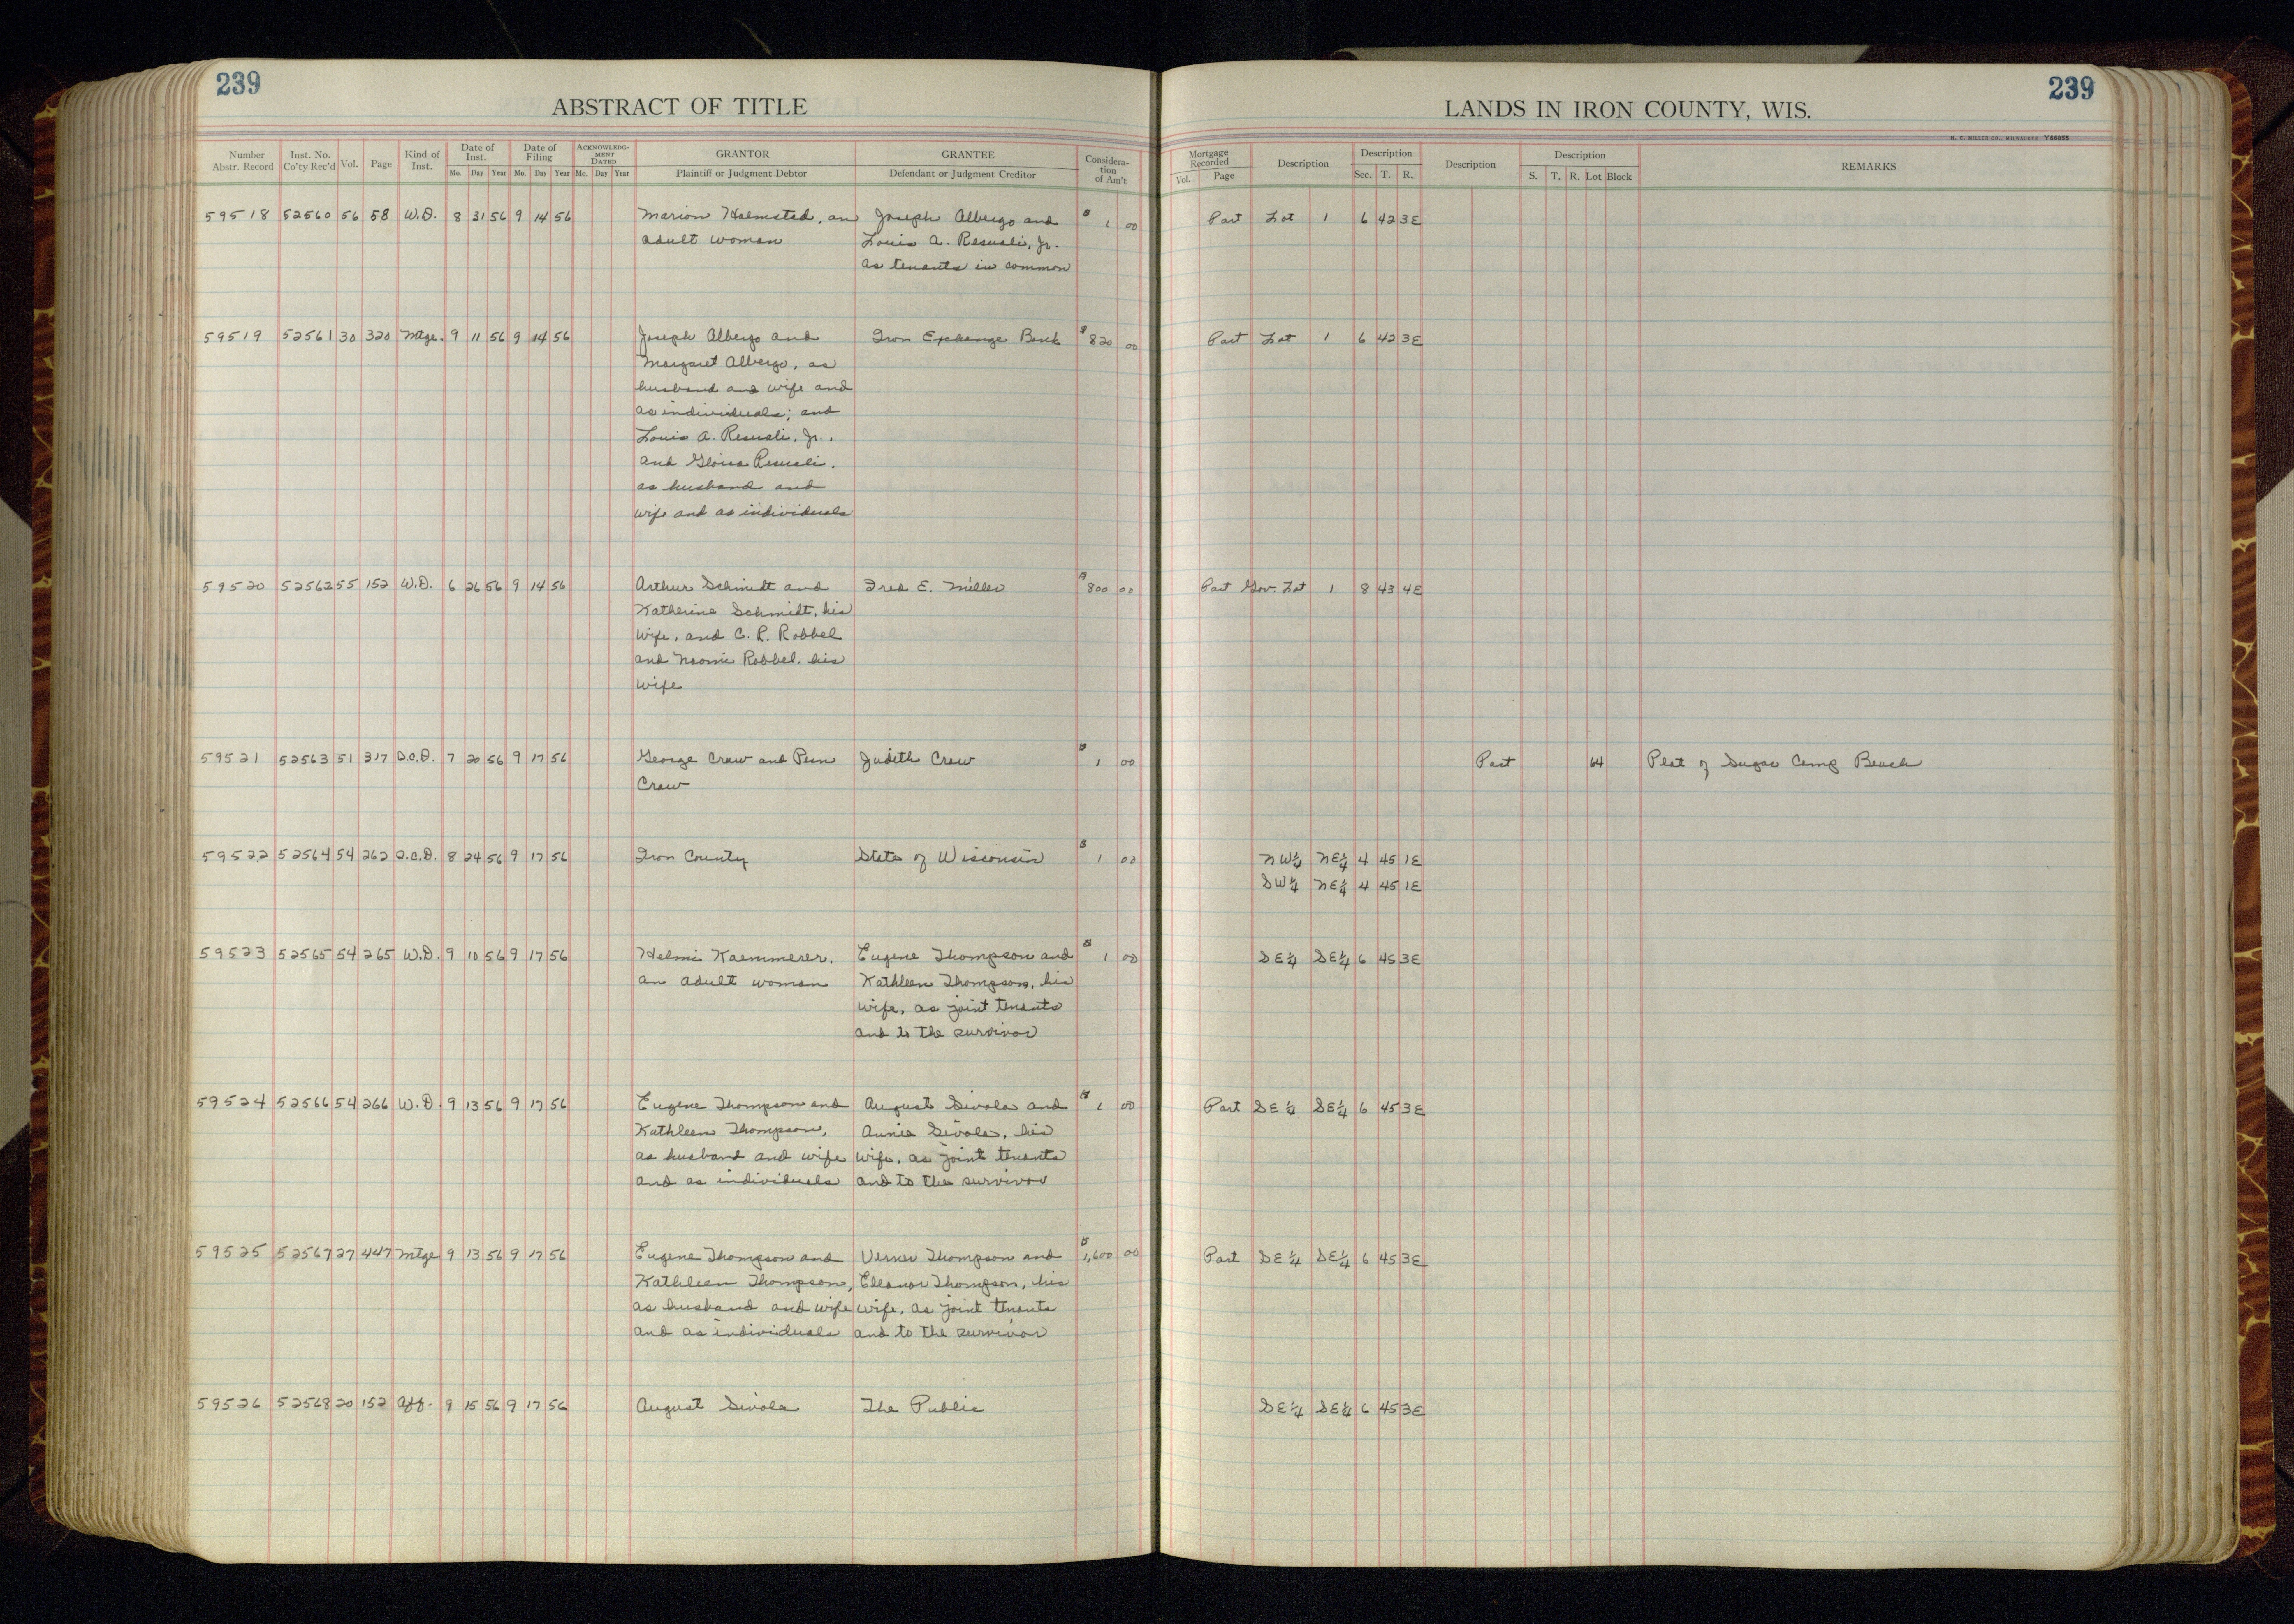 239
239
ABSTRACT OF TITLE
LANDS IN IRON COUNTY, WIS.
H. C. MILLER CO., MILWAUKEE Y66855
Number Abstr. Record Inst. No. Co'ty Rec'd Vol. Page Kind of Inst. Date of Inst. Mo. Day Year Date of Filing Mo. Day Year ACKNOWLEDGMENT DATED Mo. Day Year GRANTOR Plaintiff or Judgment Debtor GRANTEE Defendant or Judgment Creditor Consideration of Am't
Mortgage Recorded Vol. Page Description Description Sec. T. R. Description Description S. T. R. Lot Block REMARKS
59518 52560 56 58 W.D. 8 31 56 9 14 56 Marion Holmsted, an Joseph Albergo and $ 1 00 Part Lot 1 6 42 3E
adult woman Louis A. Jr.
as tenants in common
59519 52561 30 320 Mtge. 9 11 56 9 14 56 Joseph Albergo and Iron Exchange Bank $ 820 00 Part Lot 1 6 42 3E
Margaret Albergo, as
husband and wife and
as individuals; and
Louis A. Jr.,
and
as husband and
wife and as individuals
59520 52562 55 152 W.D. 6 26 56 9 14 56 Arthur Schmidt and Fred E. Miller $ 800 00 Part Gov. Lot 1 8 43 4E
Katherine Schmidt, his
wife, and C. R. Robbel
and Naomi Robbel, his
wife
59521 52563 51 317 Q.C.D. 7 20 56 9 17 56 George Craw and Judith Craw $ 1 00 Part 64 Plat of Sugar Camp Beach
Craw
59522 52564 54 262 Q.C.D. 8 24 56 9 17 56 Iron County State of Wisconsin $ 1 00 NW¼ NE¼ 4 45 1E
SW¼ NE¼ 4 45 1E
59523 52565 54 265 W.D. 9 10 56 9 17 56 Helmi Kaemmerer, Eugene Thompson and $ 1 00 SE¼ SE¼ 6 45 3E
an adult woman Kathleen Thompson, his
wife, as joint tenants
and to the survivor
59524 52566 54 266 W.D. 9 13 56 9 17 56 Eugene Thompson and August Sivola and $ 1 00 Part SE¼ SE¼ 6 45 3E
Kathleen Thompson, Annie Sivola, his
as husband and wife wife, as joint tenants
and as individuals and to the survivor
59525 52567 27 447 Mtge 9 13 56 9 17 56 Eugene Thompson and Verner Thompson and $ 1,600 00 Part SE¼ SE¼ 6 45 3E
Kathleen Thompson, Eleanor Thompson, his
as husband and wife wife, as joint tenants
and as individuals and to the survivor
59526 52568 20 152 Aff. 9 15 56 9 17 56 August Sivola The Public SE¼ SE¼ 6 45 3E